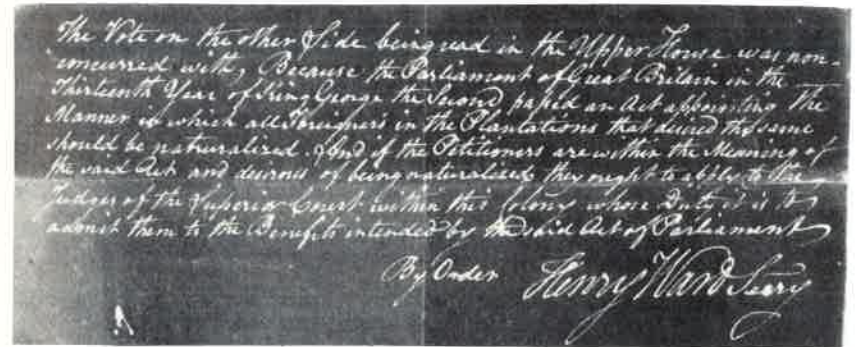 The Vote on the other Side being read in the Upper House was non-
concurred with, Because the Parliament of Great Britain in the
Thirteenth Year of King George the Second passed an Act appointing the
Manner in which all Foreigners in the Plantations that desired the same
should be naturalized. And if the Petitioners are within the Meaning of
the said Act and desirous of being naturalised they ought to apply to the
Judges of the Superior Court within this Colony whose Duty it is to
admit them to the Benefits intended by the said Act of Parliament
By Order Henry Ward Secry